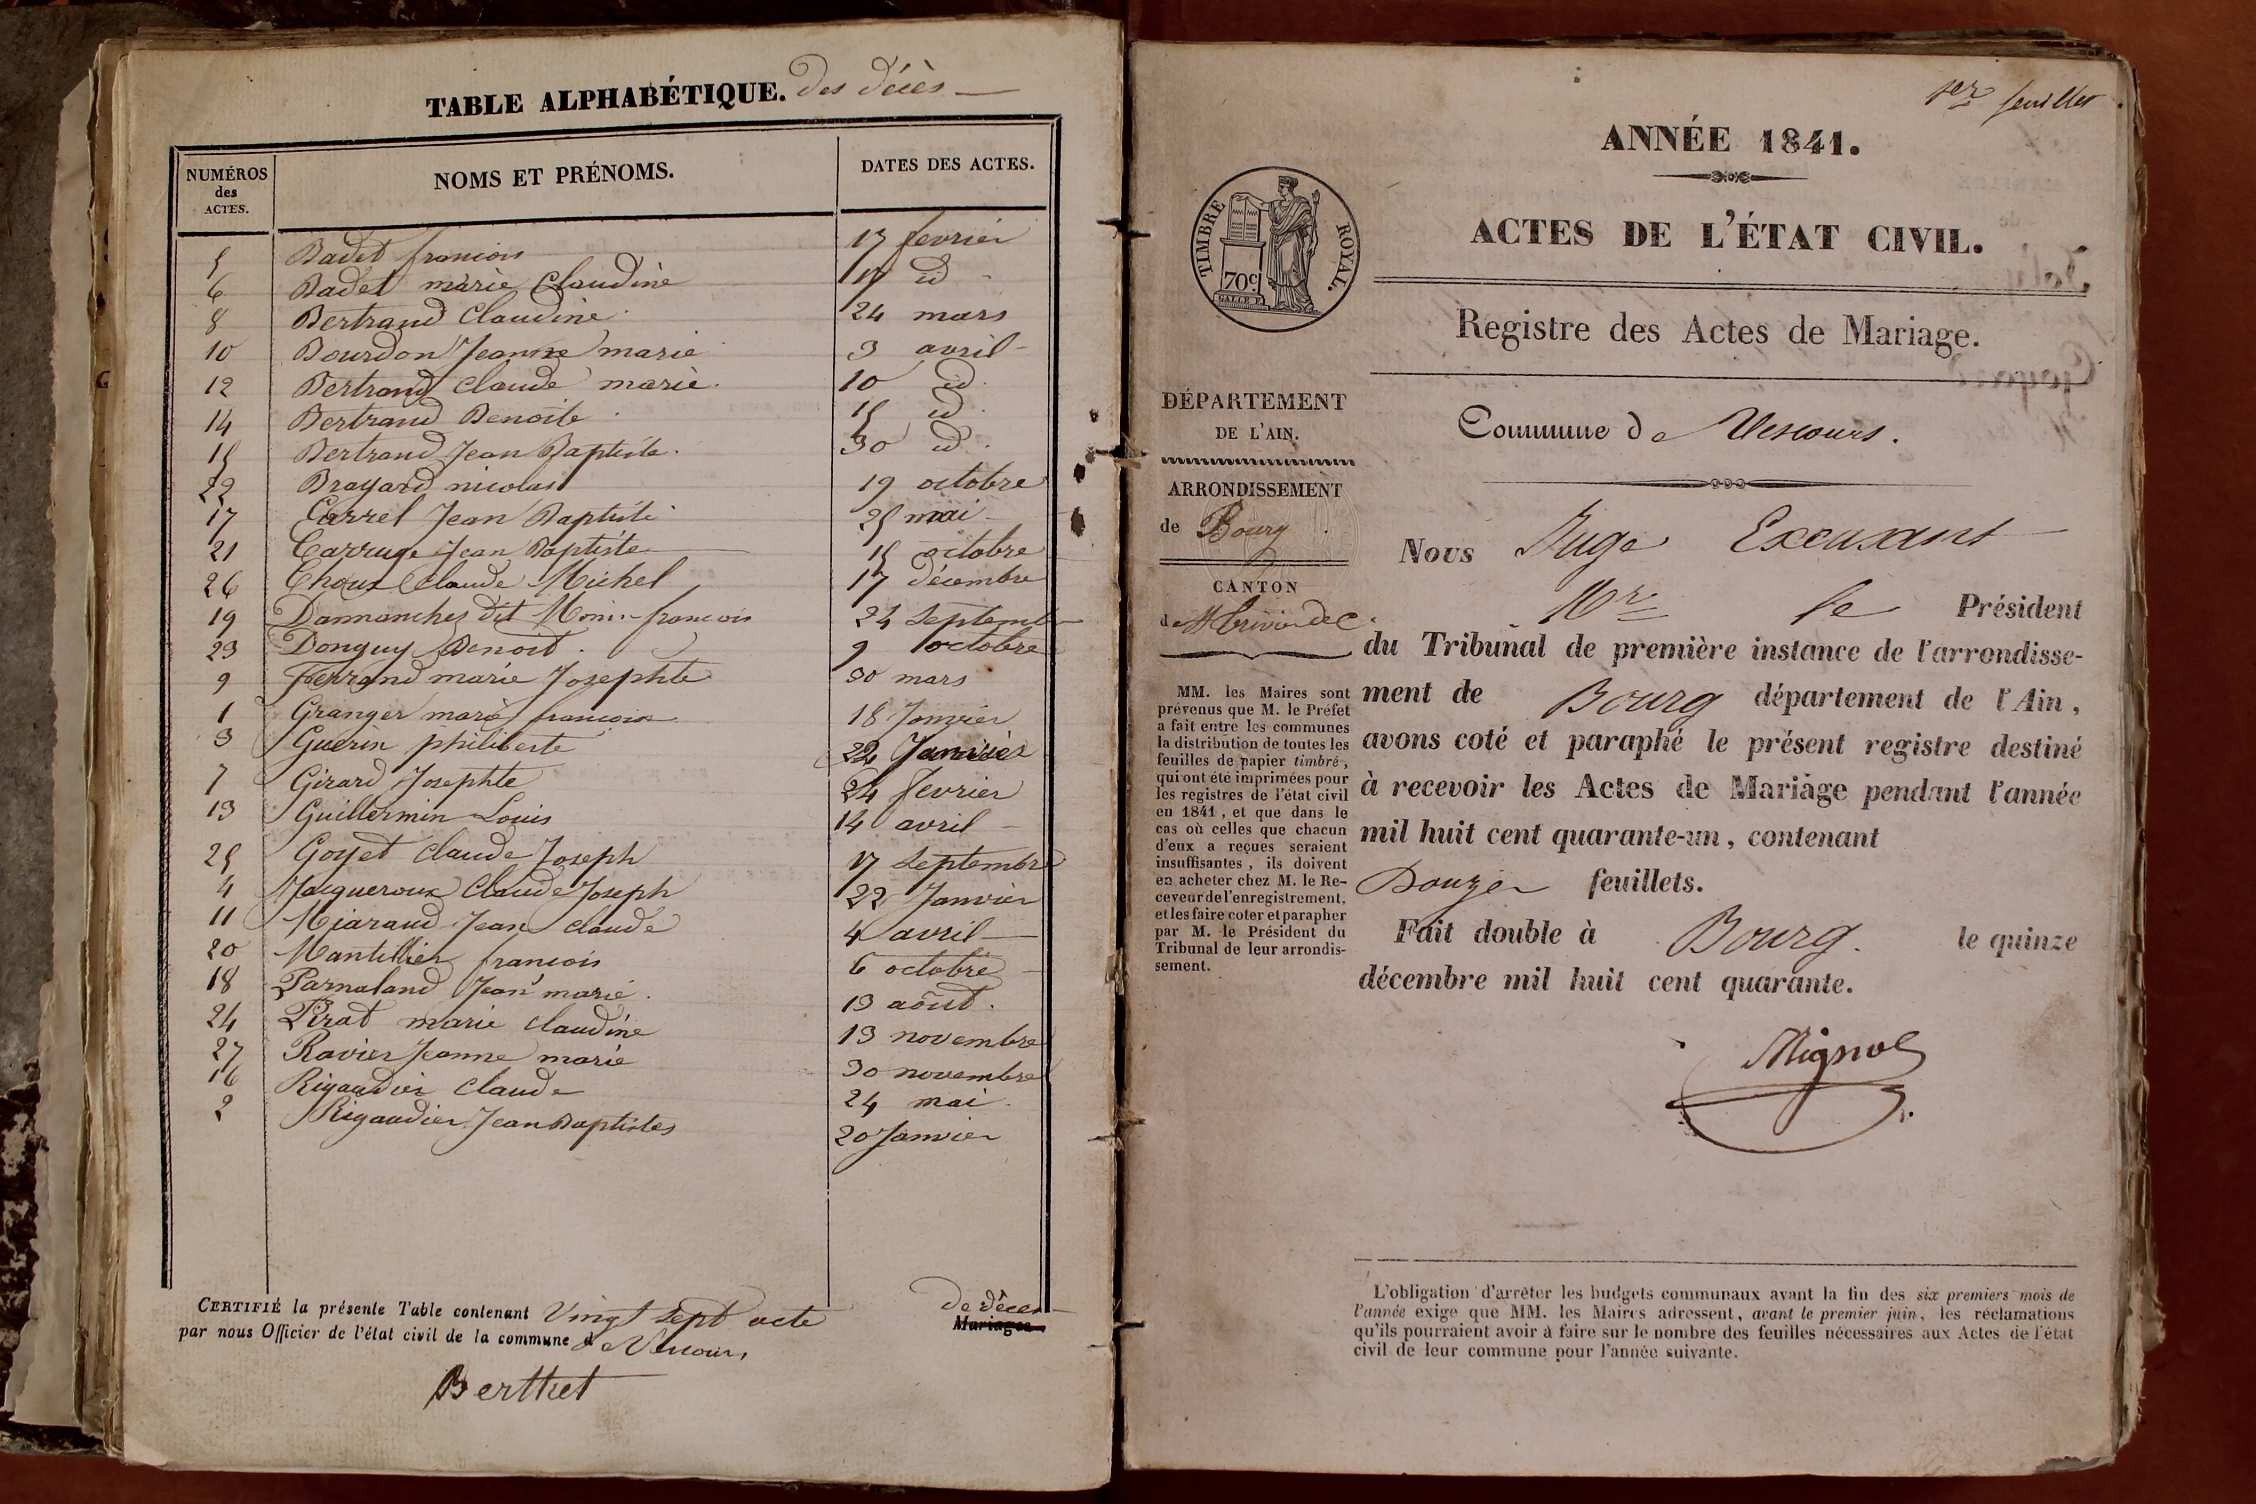 TABLE ALPHABÉTIQUE. Des décès
NUMÉROS des ACTES. NOMS ET PRÉNOMS. DATES DES ACTES.
5 Badet francois 17 fevrier
6 Badet marie Claudine 17 id
8 Bertrand Claudine 24 mars
10 Bourdon Jeanne marie 3 avril
12 Bertrand Claude marie 10 id
14 Bertrand Benoite 15 id
15 Bertrand Jean Baptiste 30 id
22 Brayard nicolas 19 octobre
17 Carrel Jean Baptiste 25 mai
21 Carruge Jean Baptiste 15 octobre
26 Choux Claude Michel 17 décembre
19 Dammanches dit Monin francois 24 septemb
23 Donguy Benoit 9 octobre
9 Ferrand marie Josephte 30 mars
1 Granger marie francoise 18 Janvier
3 Guerin philiberte 22 Janvier
7 Girard Josephte 24 fevrier
13 Guillermin Louis 14 avril
25 Goyet Claude Joseph 17 septembre
4 Jacqueroux Claude Joseph 22 Janvier
11 Miaraud Jean Claude 4 avril
20 Mantellier francois 6 octobre
18 Parnaland Jean marie 13 août
24 Pirat marie claudine 13 novembre
27 Ravier Jeanne marie 30 novembre
16 Rigaudier Claude 24 mai
2 Rigaudier Jean Baptistes 20 Janvier
CERTIFIÉ la présente Table contenant Vingt sept acte De décès Mariages
par nous Officier de l'état civil de la commune de Vescours
Berthet
1er feuillet
ANNÉE 1841.
ACTES DE L'ÉTAT CIVIL.
Registre des Actes de Mariage.
TIMBRE ROYAL.
70c
DÉPARTEMENT
DE L'AIN.
ARRONDISSEMENT
de Bourg
CANTON
de St Trivier de C.
MM. les Maires sont
prévenus que M. le Préfet
a fait entre les communes
la distribution de toutes les
feuilles de papier timbré,
qui ont été imprimées pour
les registres de l'état civil
en 1841, et que dans le
cas où celles que chacun
d'eux a reçues seraient
insuffisantes, ils doivent
en acheter chez M. le Re-
ceveur de l'enregistrement,
et les faire coter et parapher
par M. le Président du
Tribunal de leur arrondis-
sement.
Commune de Vescours.
Nous Juge Excusant
Mr le Président
du Tribunal de première instance de l'arrondisse-
ment de Bourg département de l'Ain,
avons coté et paraphé le présent registre destiné
à recevoir les Actes de Mariage pendant l'année
mil huit cent quarante-un, contenant
Douze feuillets.
Fait double à Bourg. le quinze
décembre mil huit cent quarante.
Mignot
L'obligation d'arrêter les budgets communaux avant la fin des six premiers mois de
l'année exige que MM. les Maires adressent, avant le premier juin, les réclamations
qu'ils pourraient avoir à faire sur le nombre des feuilles nécessaires aux Actes de l'état
civil de leur commune pour l'année suivante.